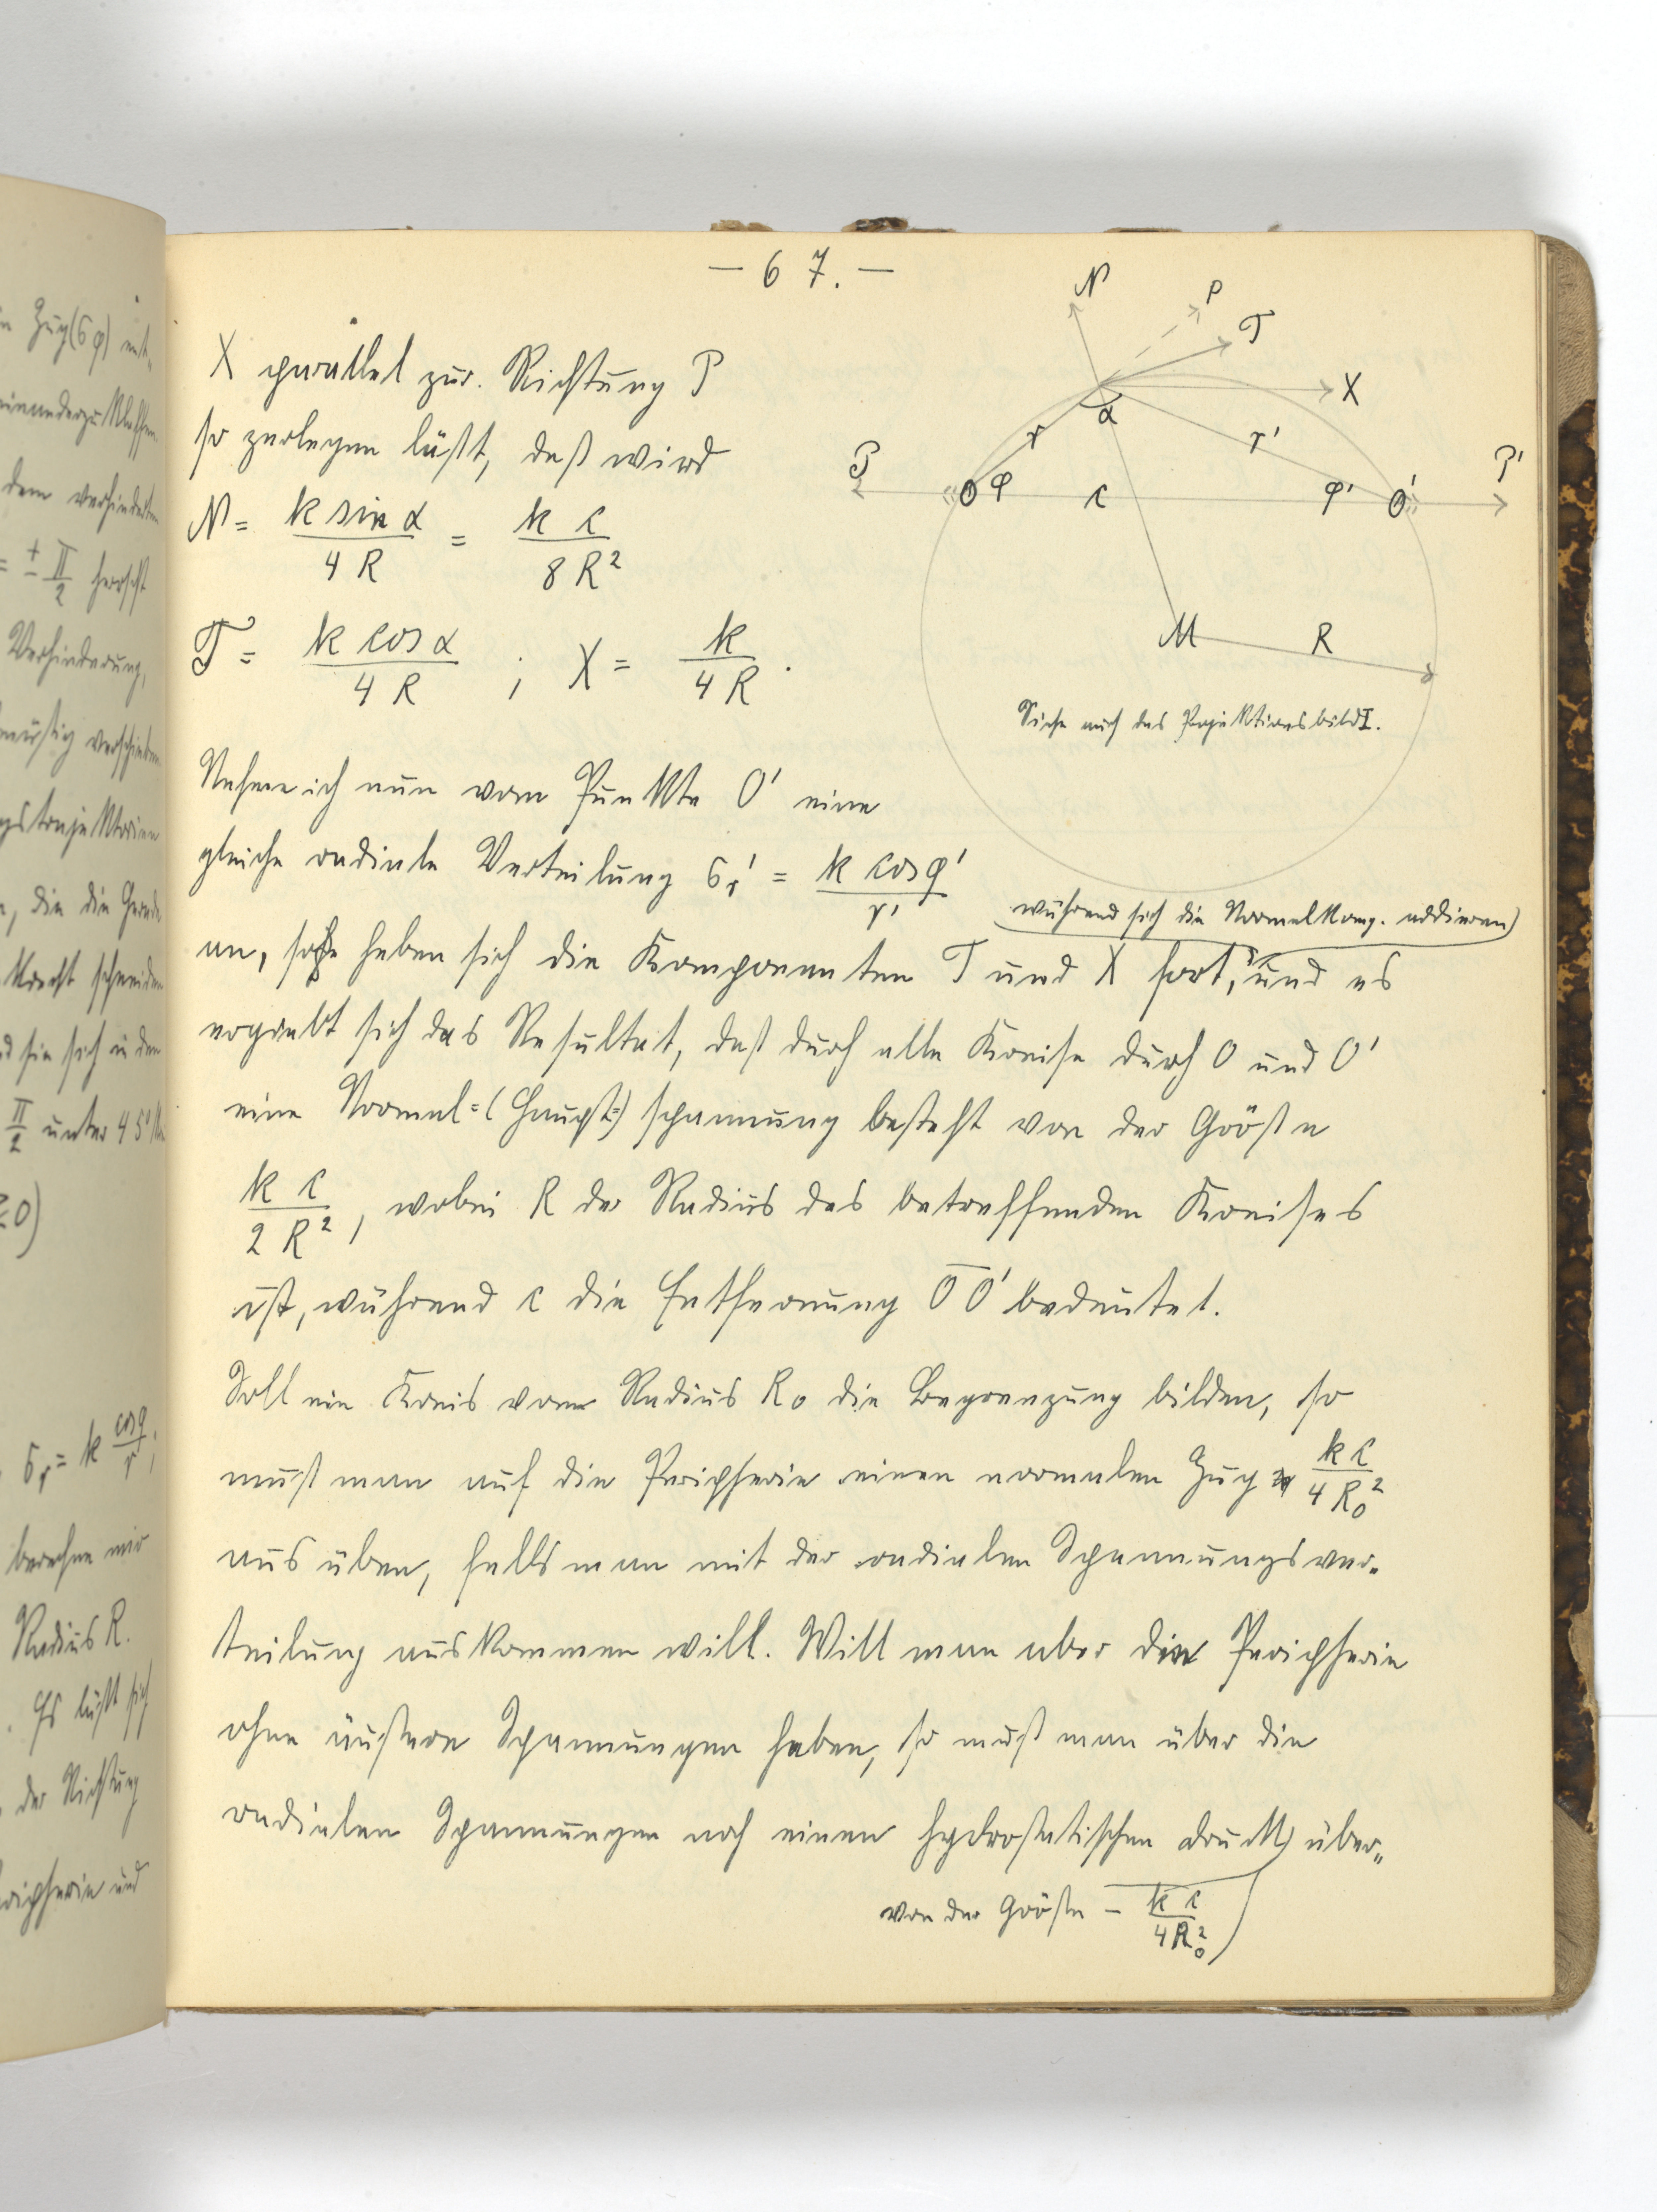 — 67. —
X parallel zur Richtung P
so zerlegen läßt, daß wird
N = k sin α / 4 R = k c / 8 R²
T = k cos α / 4 R ; X = k / 4 R .
N
P
T
X
α
r
r'
P
O
φ
c
φ'
O'
P'
M
R
Siehe auch das Projektionsbild I.
Nehme ich nun vom Punkte O' eine
gleiche radiale Verteilung σr' = k cos φ' / r'
(während sich die Normalkomp. addieren)
an, so heben sich die Komponenten T und X fort, und es
ergiebt sich das Resultat, daß durch alle Kreise durch O und O'
eine Normal=(Haupt=) spannung besteht von der Größe
k c / 2 R² , wobei R der Radius des betreffenden Kreises
ist, während c die Entfernung O O' bedeutet.
Soll ein Kreis vom Radius R₀ die Begrenzung bilden, so
muß man auf die Peripherie einen normalen Zug k c / 4 R₀²
ausüben, falls man mit der radialen Spannungsver-
teilung auskommen will. Will man aber die Peripherie
ohne äußere Spannungen haben, so muß man über die
radialen Spannungen noch einen hydrostatischen Druck über-
von der Größe – k c / 4 R₀²
in Zug (σφ) mit-
dem verhinderten
= ± π/2 herrscht
Verhinderung,
n, die die Gerade
d sie sich in den
π/2 unter 45°
≥0)
σr = k cos φ / r ;
berechne mir
Radius R.
. Es läßt sich
der Richtung
Peripherie und